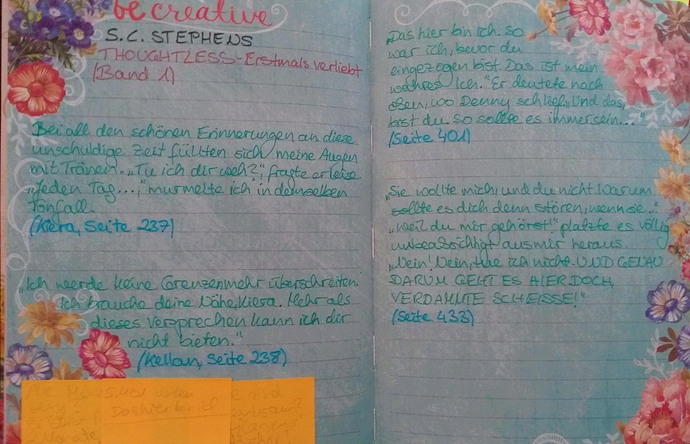 be creative
S.C. STEPHENS
THOUGHTLESS - Erstmals verliebt
(Band 1)
Bei all den schönen Erinnerungen an diese
unschuldige Zeit füllten sich meine Augen
mit Tränen. „Tu ich dir weh?", fragte er leise
„Jeden Tag...," murmelte ich in demselben
Tonfall.
(Kiera, Seite 237)
Ich werde keine Grenzen mehr überschreiten.
Ich brauche deine Nähe, Kiera. Mehr als
dieses Versprechen kann ich dir
nicht bieten."
(Kellan, Seite 238)
Das hier bin ich
„Das hier bin ich. So
war ich, bevor du
eingezogen bist. Das ist mein
wahres Ich." Er deutete nach
oben, wo Denny schlief. Und das
bist du. So sollte es immer sein..."
(Seite 401)
„Sie wollte mich, und du nicht. Warum
sollte es dich denn stören, wenn sie.."
„Weil du mir gehörst!" platzte es völlig
unbeabsichtigt aus mir heraus.
„Nein! Nein, tue ich nicht. UND GENAU
DARUM GEHT ES HIER DOCH,
VERDAMMTE SCHEISSE!"
(Seite 433)